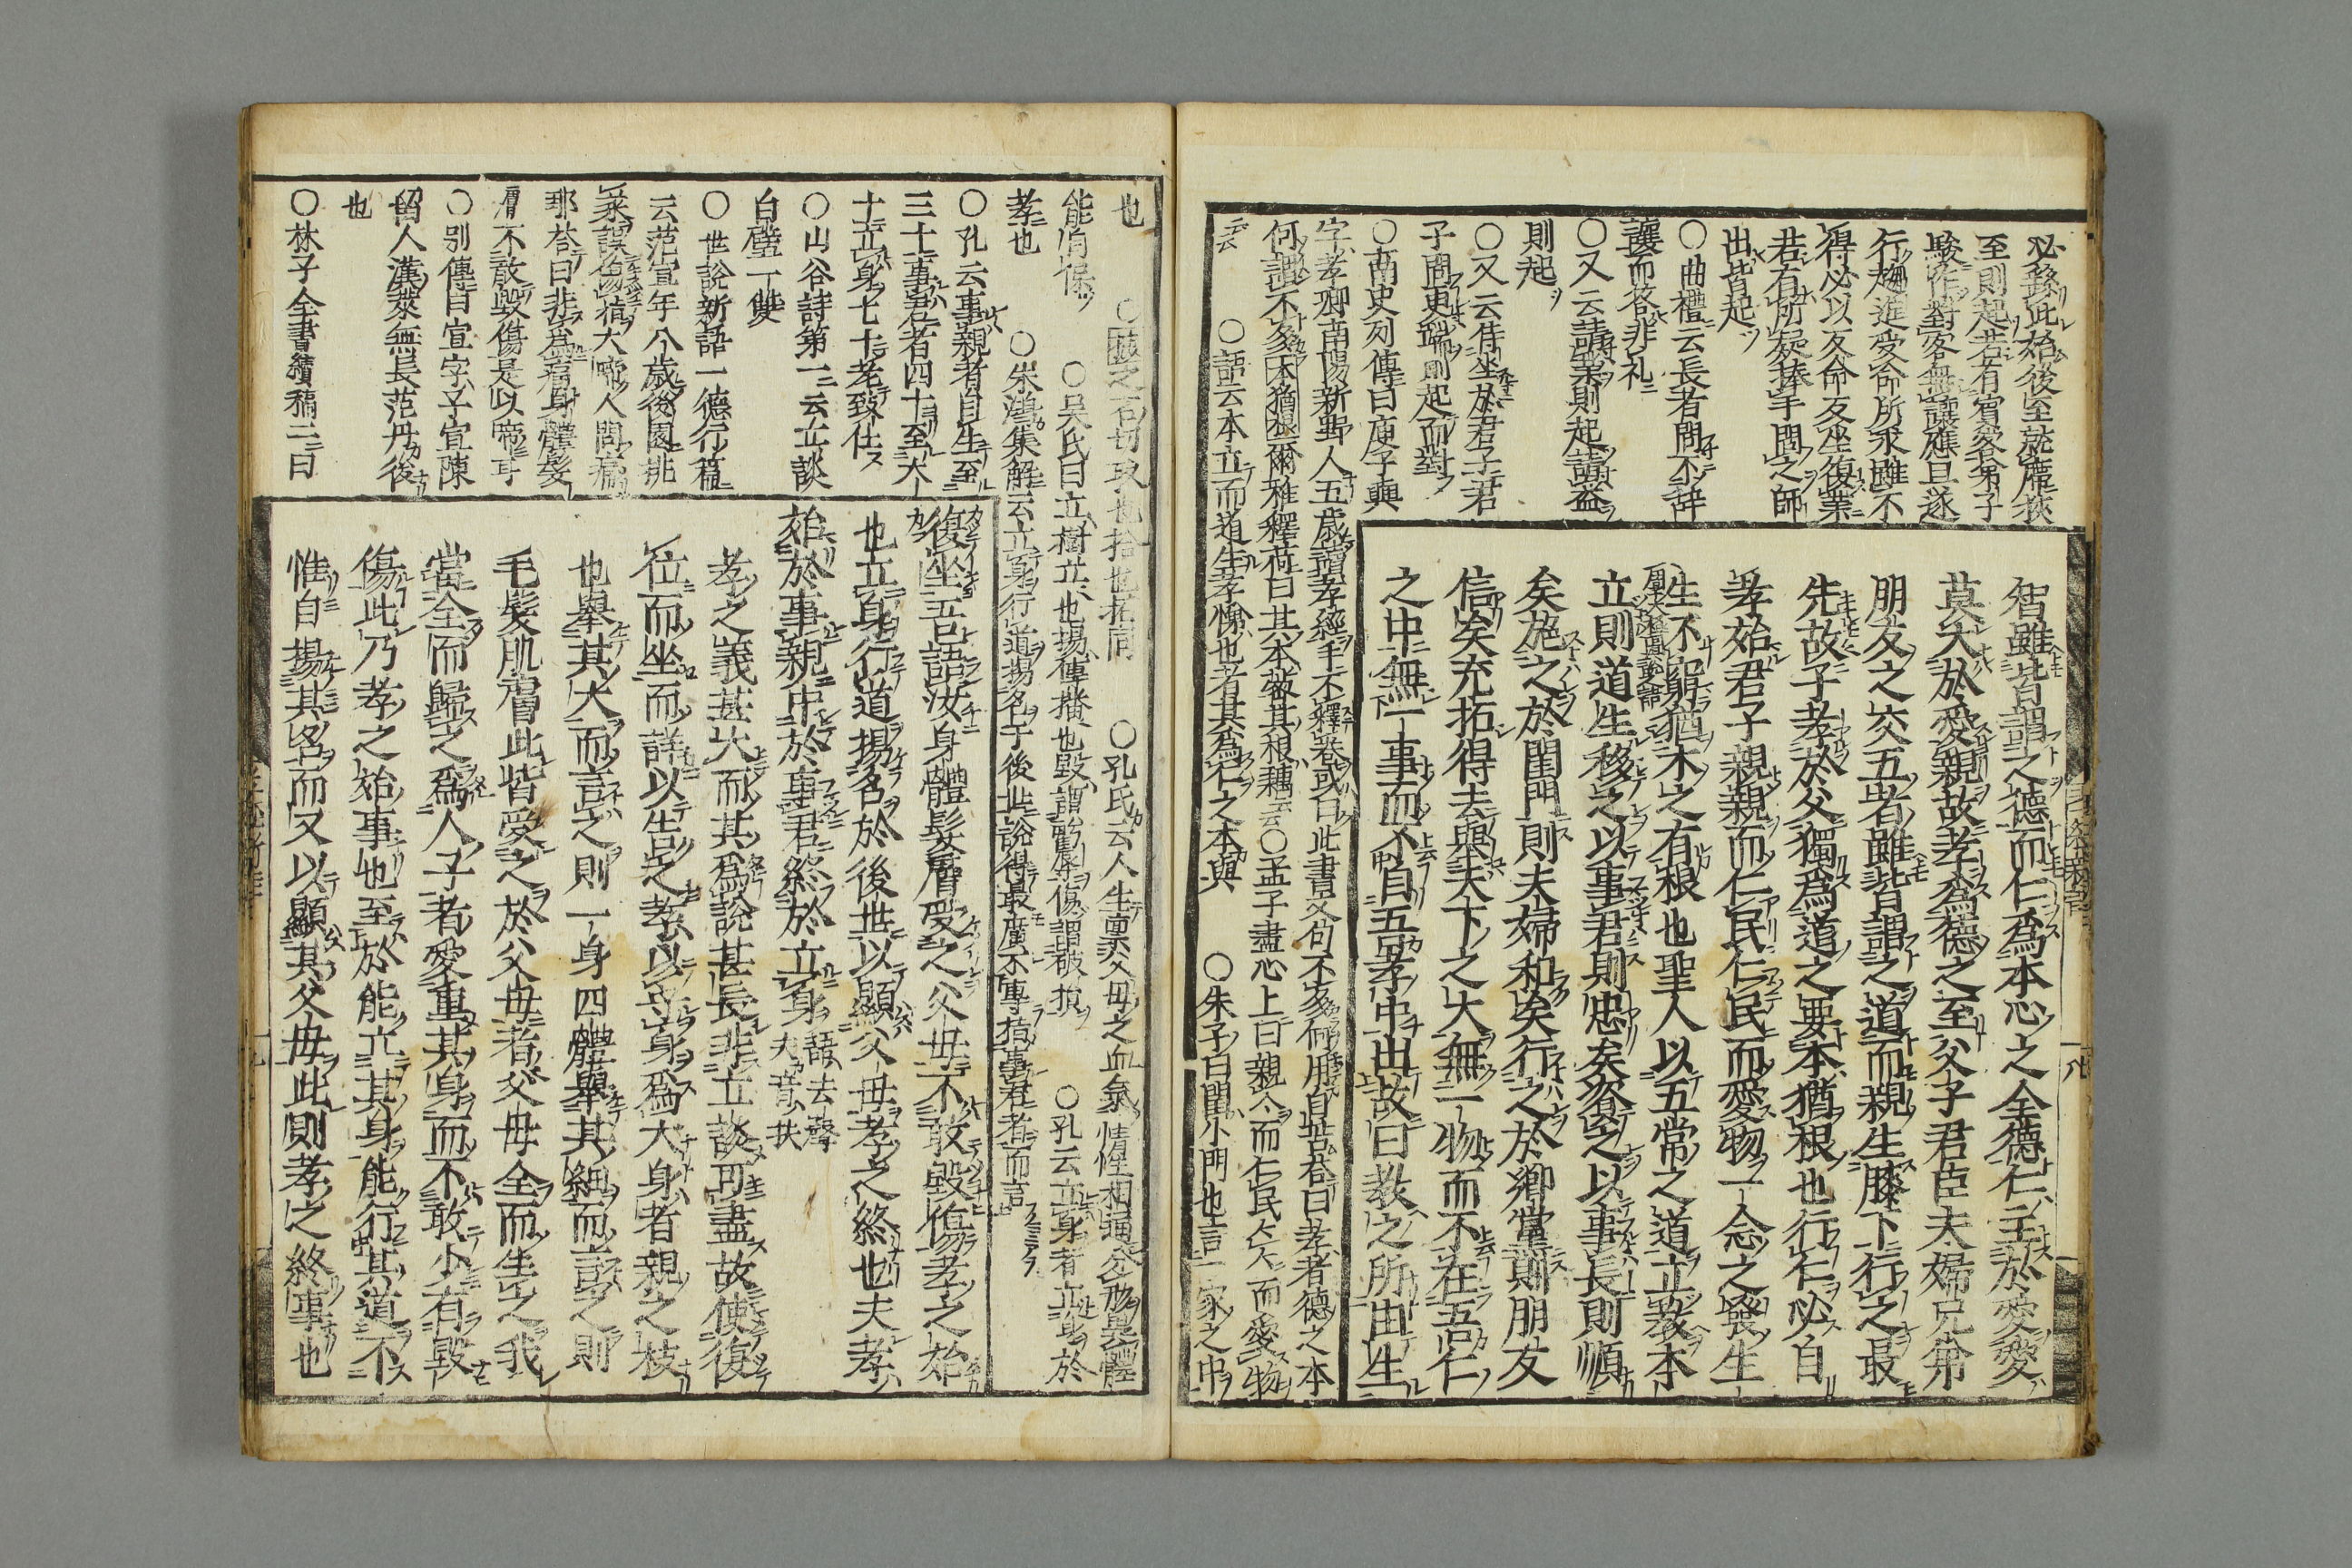 必躾此始後至就席狹
至則起若有賓客弟子
駿作對客無讓應且遂
行趨進受命所求雖不
得必以反命反坐復業
若有所疑捧手問之師
出皆起
○曲禮云長者問不辞
讓而答非礼
○又云請業則起請益
則起
○又云侍坐於君子君
子問更端則起而對
○南史列傳曰庾子輿
字孝卿南陽新野人五歳讀孝經手不釋卷或曰此書文句不多何用自苦荅曰孝者德之本
何謂不多本猶根爾雅釋荷曰其本蔤其根藕云云○孟子盡心上曰親々而仁民仁民而愛物
云云 ○語云本立而道生孝悌也者其為仁之本與 ○朱子曰閨小門也言一家之中
智雖皆謂之德而仁為本心之全德仁主於愛愛
莫大於愛親故孝為德之至父子君臣夫婦兄弟
朋友之交五者雖皆謂之道而親生膝下行之最
先故子孝於父獨為道之要本猶根也行仁必自
孝始君子親親而仁民仁民而愛物一念之發生
生不窮猶木之有根也聖人以五常之道立教本
立則道生移之以事君則忠矣資之以事長則順
矣施之於閨門則夫婦和矣行之於鄉黨則朋友
信矣充拓得去與天下之大無一物而不在吾仁
之中無一事而不自吾孝中出故曰教之所由生
也 ○孔氏云人生稟父母之血氣情性相通分形異體
能自保 ○吴氏曰立樹立也揚傳播也毀謂虧辱傷謂破損 ○孔云立身者立身於
孝也 ○朱鴻集解云立身行道揚名于後世說得最廣不專指事君者而言
○孔云事親者自生至
三十事君者四十至大
十立身七十老致仕
○山谷詩第一云立談
白璧一雙
○世說新語一德行篇
云范宣年八歳後園挑
菜誤傷指大啼人問痛
耶荅曰非為痛身體髮
膚不敢毀傷是以啼耳
○别傳曰宣字子宣陳
留人漢萊無長范丹後
也
○林子全書續稿二曰
復坐吾語汝身體髮膚受之父母不敢毀傷孝之始
也立身行道揚名於後世以顯父母孝之終也夫孝
始於事親中於事君終於立身語去聲夫音扶
孝之義甚大而其為說甚長非立談可盡故使復
位而坐而詳以告之孝以守身為大身者親之枝
也舉其大而言之則一身四體舉其細而言之則
毛髮肌膚此皆受之於父母者父母全而生之我
當全而歸之為人子者愛重其身而不敢少有毀
傷此乃孝之始事也至於能立其身能行其道不
惟自揚其名而又以顯其父母此則孝之終事也